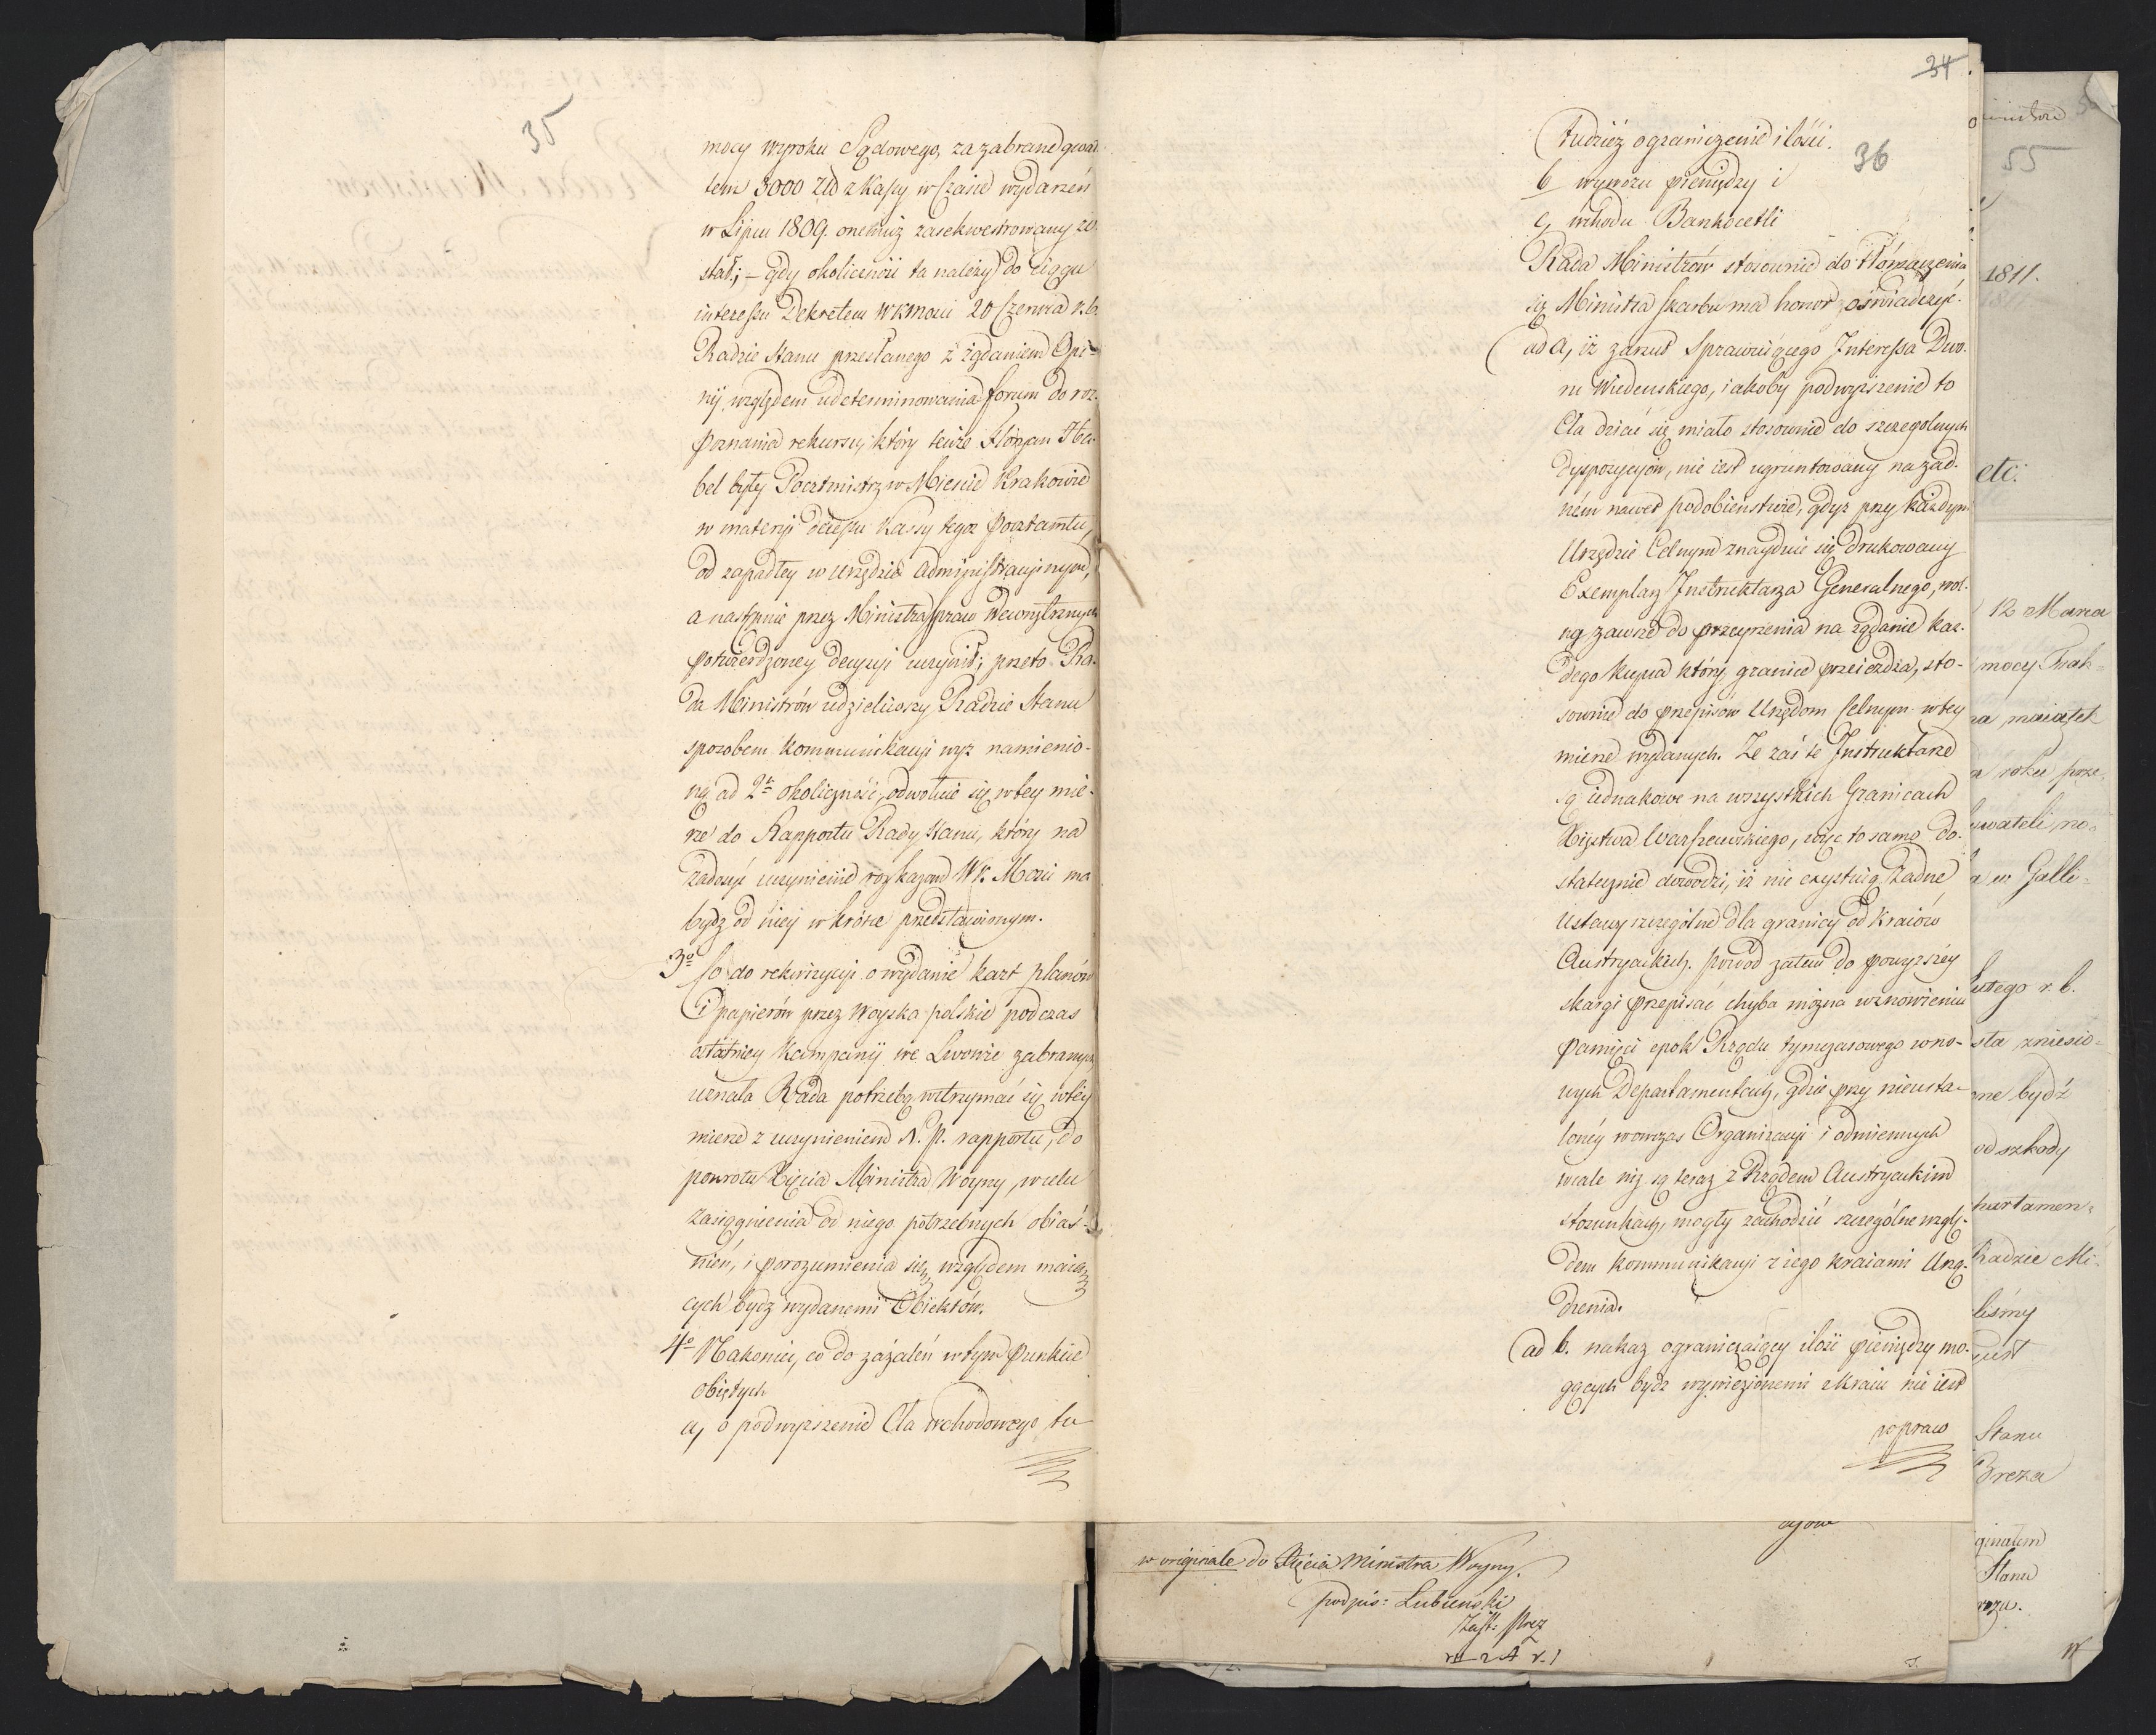 35
mocy wyroku Sądowego, za zabrane gwał
tem 3000 Złł z Kassy w Czasie wydarzeń
w Lipcu 1809. onemuż zasekwestrowany zo
stał; – gdy okoliczność ta należy do ciągu
interessu Dekretem WKMości 20 Czerwca r.b.
Radzie Stanu przesłanego z żądaniem Opi-
nij względem udeterminowania forum do roz-
poznania rekursu, który tenże Floryan Ha-
bel były Pocztmistrz w Mieście Krakowie
w materyi defessu Kassy tegoż Pocztamtu,
od zapadłey w Urzędzie Administracyinym,
a następnie przez Ministra Spraw Wewnętrznych
potwierdzoney decyzyi uczynił; przeto Ra-
da Ministrów udzieliwszy Radzie Stanu
sposobem kommunikacyi wyż namienio-
ną ad 2m okoliczność, odwołuie się w tey mie-
rze do Rapportu Rady Stanu, który na
zadosyć uczynienie rozkazowi W.K. Mości ma
bydz od niey wkrótce przedstawionym.
3o Co do rekwizycyi o wydanie kart planów
i papierów przez Woyska polskie podczas
ostatniey Kampanij we Lwowie zabranych
uznała Rada potrzebę wstrzymać się w tey
mierze z uczynieniem N. P. rapportu, do
powrotu Xięcia Ministra Woyny, w celu
zasiągnienia od niego potrzebnych obiaś-
nień, i porozumienia się, względem maią-
cych bydz wydanemi Obiektów.
4o Nakoniec, co do zażaleń w tym punkcie
obiętych
a, o podwyższenie Cła wchodowego tu
34
36
tudzież ograniczenie ilości.
b wywozu pieniędzy i
c, wchodu Bankocetli
Rada Ministrów stosownie do tłómaczenia
się Ministra Skarbu ma honor oświadczyć.
ad a, iż zarzut Sprawuiącego Interessa Dwo-
ru Wiedeńskiego, iakoby podwyższenie to
Cła dziać się miało stosownie do szczególnych
dyspozycyów, nie iest ugruntowany na żad-
ném nawet podobieństwie, gdyż przy każdym
Urzędzie Celnym znayduie się drukowany
Exemplarz Instruktarza Generalnego, wol-
ny zawsze do przeyrzenia na żądanie każ-
dego kupca który granice przeieżdża, sto-
sownie do przepisów Urzędom Celnym w tey
mierze wydanych. Że zaś te Instruktarze
są iednakowe na wszystkich Granicach
Xięstwa Warszawskiego, więc to samo do-
statecznie dowodzi, iż nie exystuią żadne
Ustawy szczególne dla granicy od Kraiów
Austryackich. Powód zatem do powyższéy
skargi przepisać chyba można wznowieniu
pamięci epok Rządu tymczasowego w no-
wych Departamentach, gdzie przy nieusta-
lonéy wówczas Organizacyi i odmiennych
wcale niż są teraz z Rządem Austryackim
stosunkach, mogły zachodzić szczególne wzglę-
dem kommunikacyi z iego kraiami Urzą-
dzenia.
ad b. nakaz ograniczaiący ilość pieniędzy mo-
gących bydz wywiezionemi z Kraiu nie iest
wpraw
w originale do Xięcia Ministra Woyny.
podpis: Lubieński
Zast: Prez
55
1811.
etc:
12 Marca
mocy Trak-
maiątek
roku prze-
w Galli-
Lutego r. b.
zniesio-
bydź
od szkody
partamen-
Radzie Mi-
Stanu
Breza
Stanu